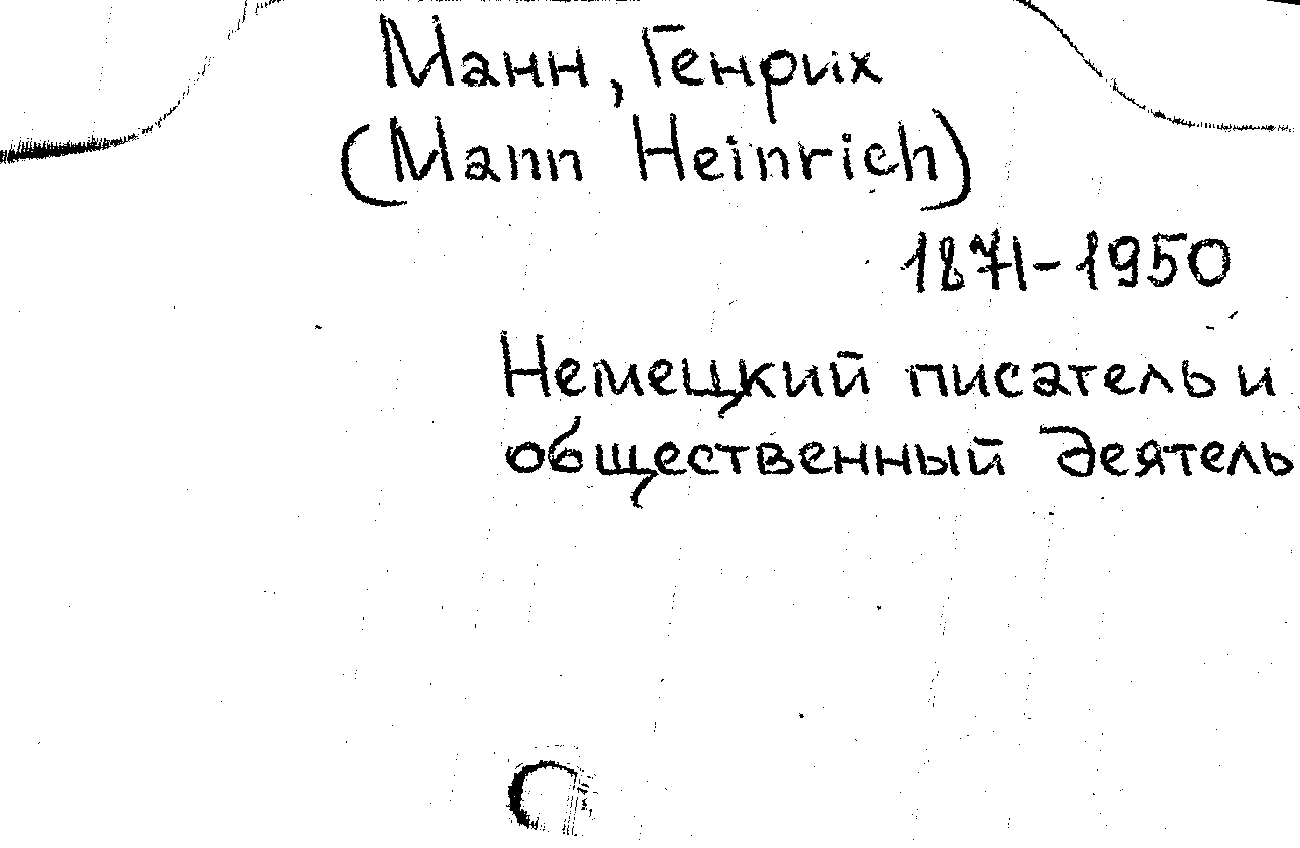 Манн, Генрих
(Mann Heinrich)
1871-1950
Немецкий писатель и
общественный деятель